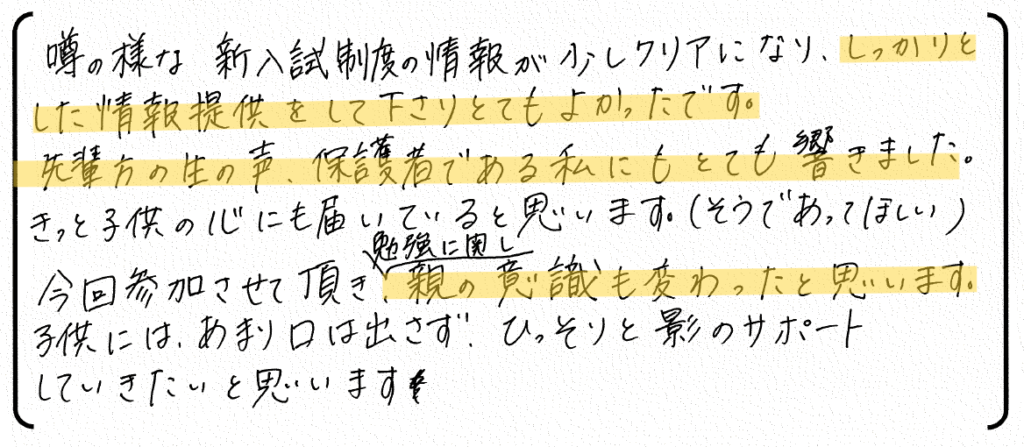 噂の様な 新入試制度の情報が少しクリアになり、しっかりと
した情報提供をして下さりとてもよかったです。
先輩方の生の声、保護者である私にもとても響きました。
きっと子供の心にも届いていると思います。(そうであってほしい)
勉強に関し
今回参加させて頂き、親の意識も変わったと思います。
子供には、あまり口は出さず、ひっそりと影のサポート
していきたいと思います